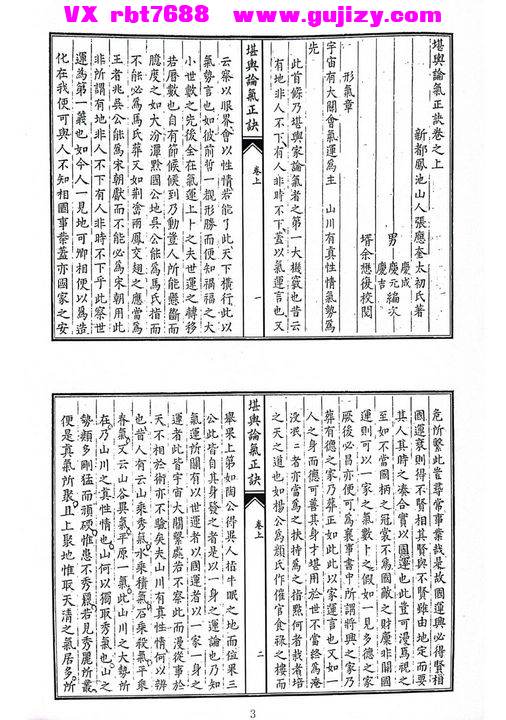 VX rbt7688 www.gujizy.com
堪輿論氣正訣卷之上
新都鳳池山人張應奎太初氏著
慶成
男 慶元 編次
慶吉
壻余懋俊校閱
形氣章
宇宙有大關會氣運為主 山川有真性情氣勢為
先
此首條乃堪輿家論氣者之第一大機竅也昔云
有地非人不下有人非時不下蓋以氣運言也又
堪輿論氣正訣
卷上
一
云察以眼界會以性情若能了此天下橫行此以
氣勢言也如彼前哲一觀形勝而便知禍福之大
小世數之先後全在氣運上卜之夫世運之轉移
若曆數也自有節候候到乃動豈人所能懸斷而
臆度之如大汾潭黙國公地吳公能為馬氏指而
不能必為馬氏葬又如荆畨兩鳳交翅之應當為
王者兆吳公能為宋朝獻而不能必為宋朝用此
非所謂有地非人不下有人非時不下乎此察世
運為第一義也如今人一見地可卿相便以為造
化在我便可與人不知相國事業蓋亦國家之安
危所繫此豈尋常事業哉是故國運興必得賢相
國運衰則得不賢相其賢與不賢雖由地定而要
其人其時之奏合實以國運也此豈可漫為視之
至如不當國柄之冠裳不為國敵之財糜非關國
運則可以一家之氣數卜之假如一見多德之家
厥後必昌亦便可為裹事書中所謂將興之家乃
葬有德之家乃葬正如此此以家運言也又如一
人之身而德可善其身才堪用於世不當終為淹
没泯泯者亦當為之扶持為之指點何者栽者培
之天之道也如楊公為顏氏作催官食祿之樓而
堪輿論氣正訣
卷上
二
舉果上第如陶公得異人指牛眠之地而位果三
公此皆自其身發之者是以一身之運論也乃知
氣運所關有以世運者以國運者以一家一身之
運者此皆宇宙大關繫處若不察此而漫從事於
天不相於術亦不驗矣夫山川有真性情何以辨
也昔人有云山乘秀氣水乘積氣石乘殺氣平乘
春氣又云山谷異氣平原一氣此山川之大勢所
在乃山川之真性情也山何以獨取秀氣也山之
勢類多剛猛而頑硬惟患不秀麗若見秀麗所叢
便是真氣所聚且上聚地惟取天清之氣居多所
3